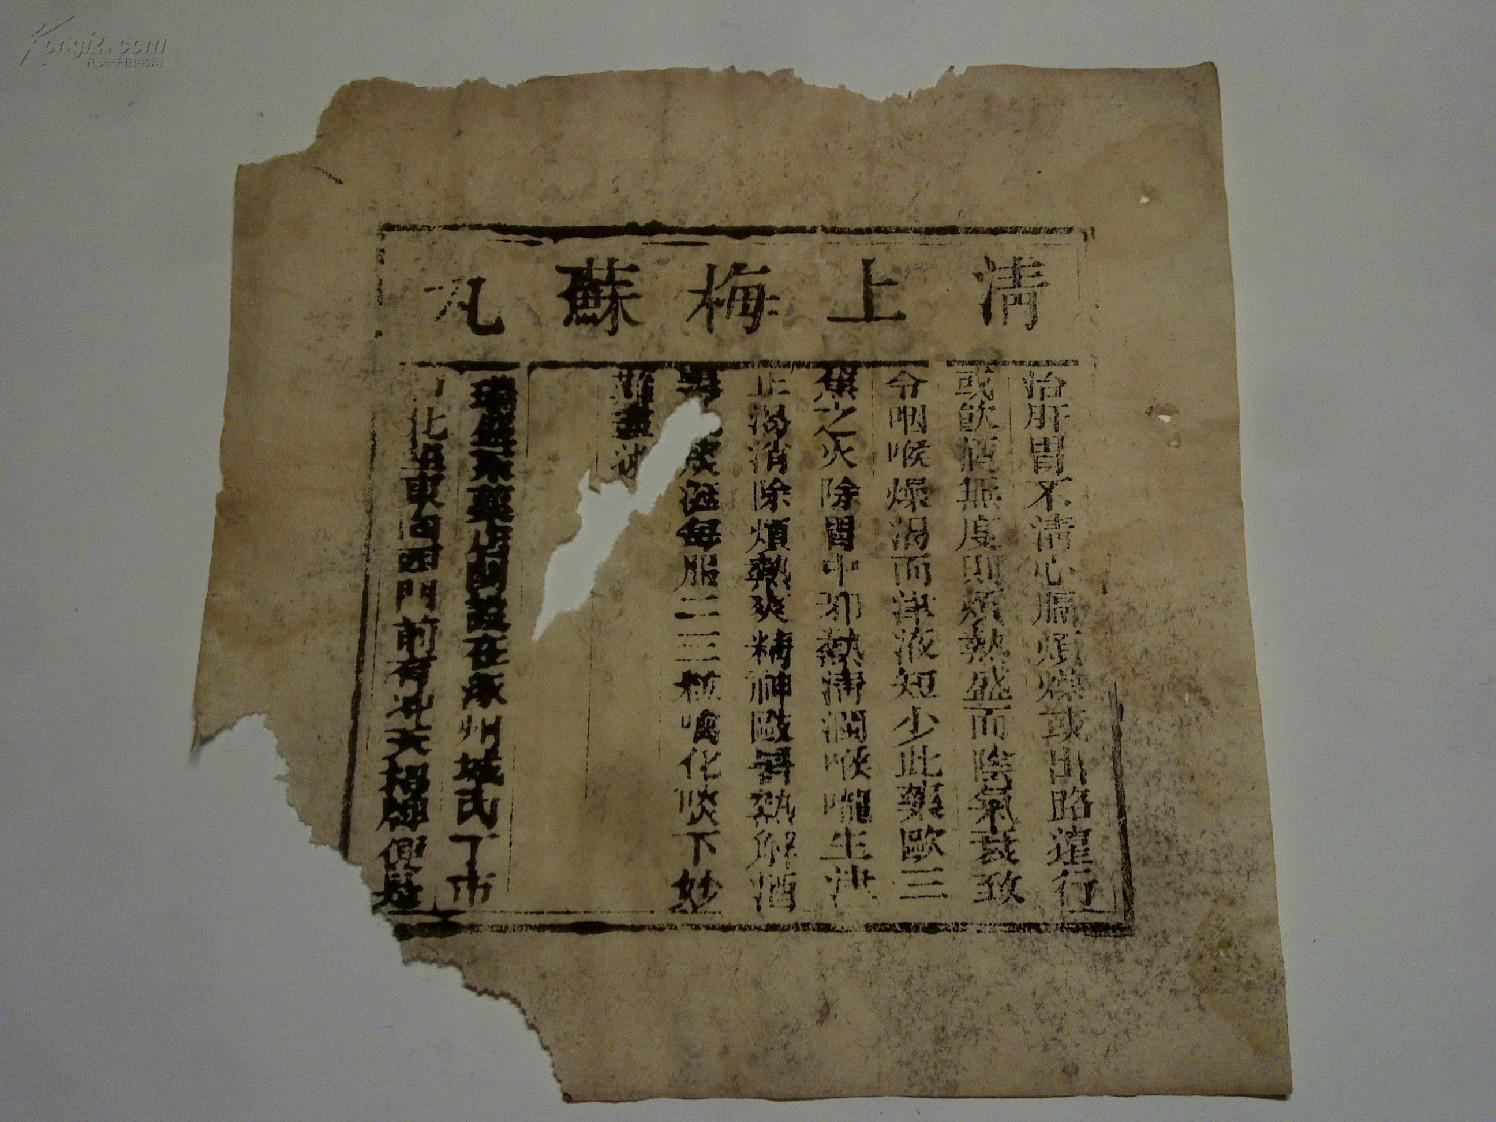 清上梅蘇丸
治肝胃不清心膈煩燥或出路遠行
或飲酒無度則煩熱盛而陰氣衰致
令咽喉燥渴而津液短少此藥歐三
焦之火除胃中邪熱清潤喉嚨生津
止渴消除煩熱爽精神歐暑熱解酒
毒滋每服二三粒噙化啖下妙
難盡述
藥店開設在涿州城內丁市
北坐東向西門前有冲天招牌便是
Kongfz.com
孔夫子旧书网